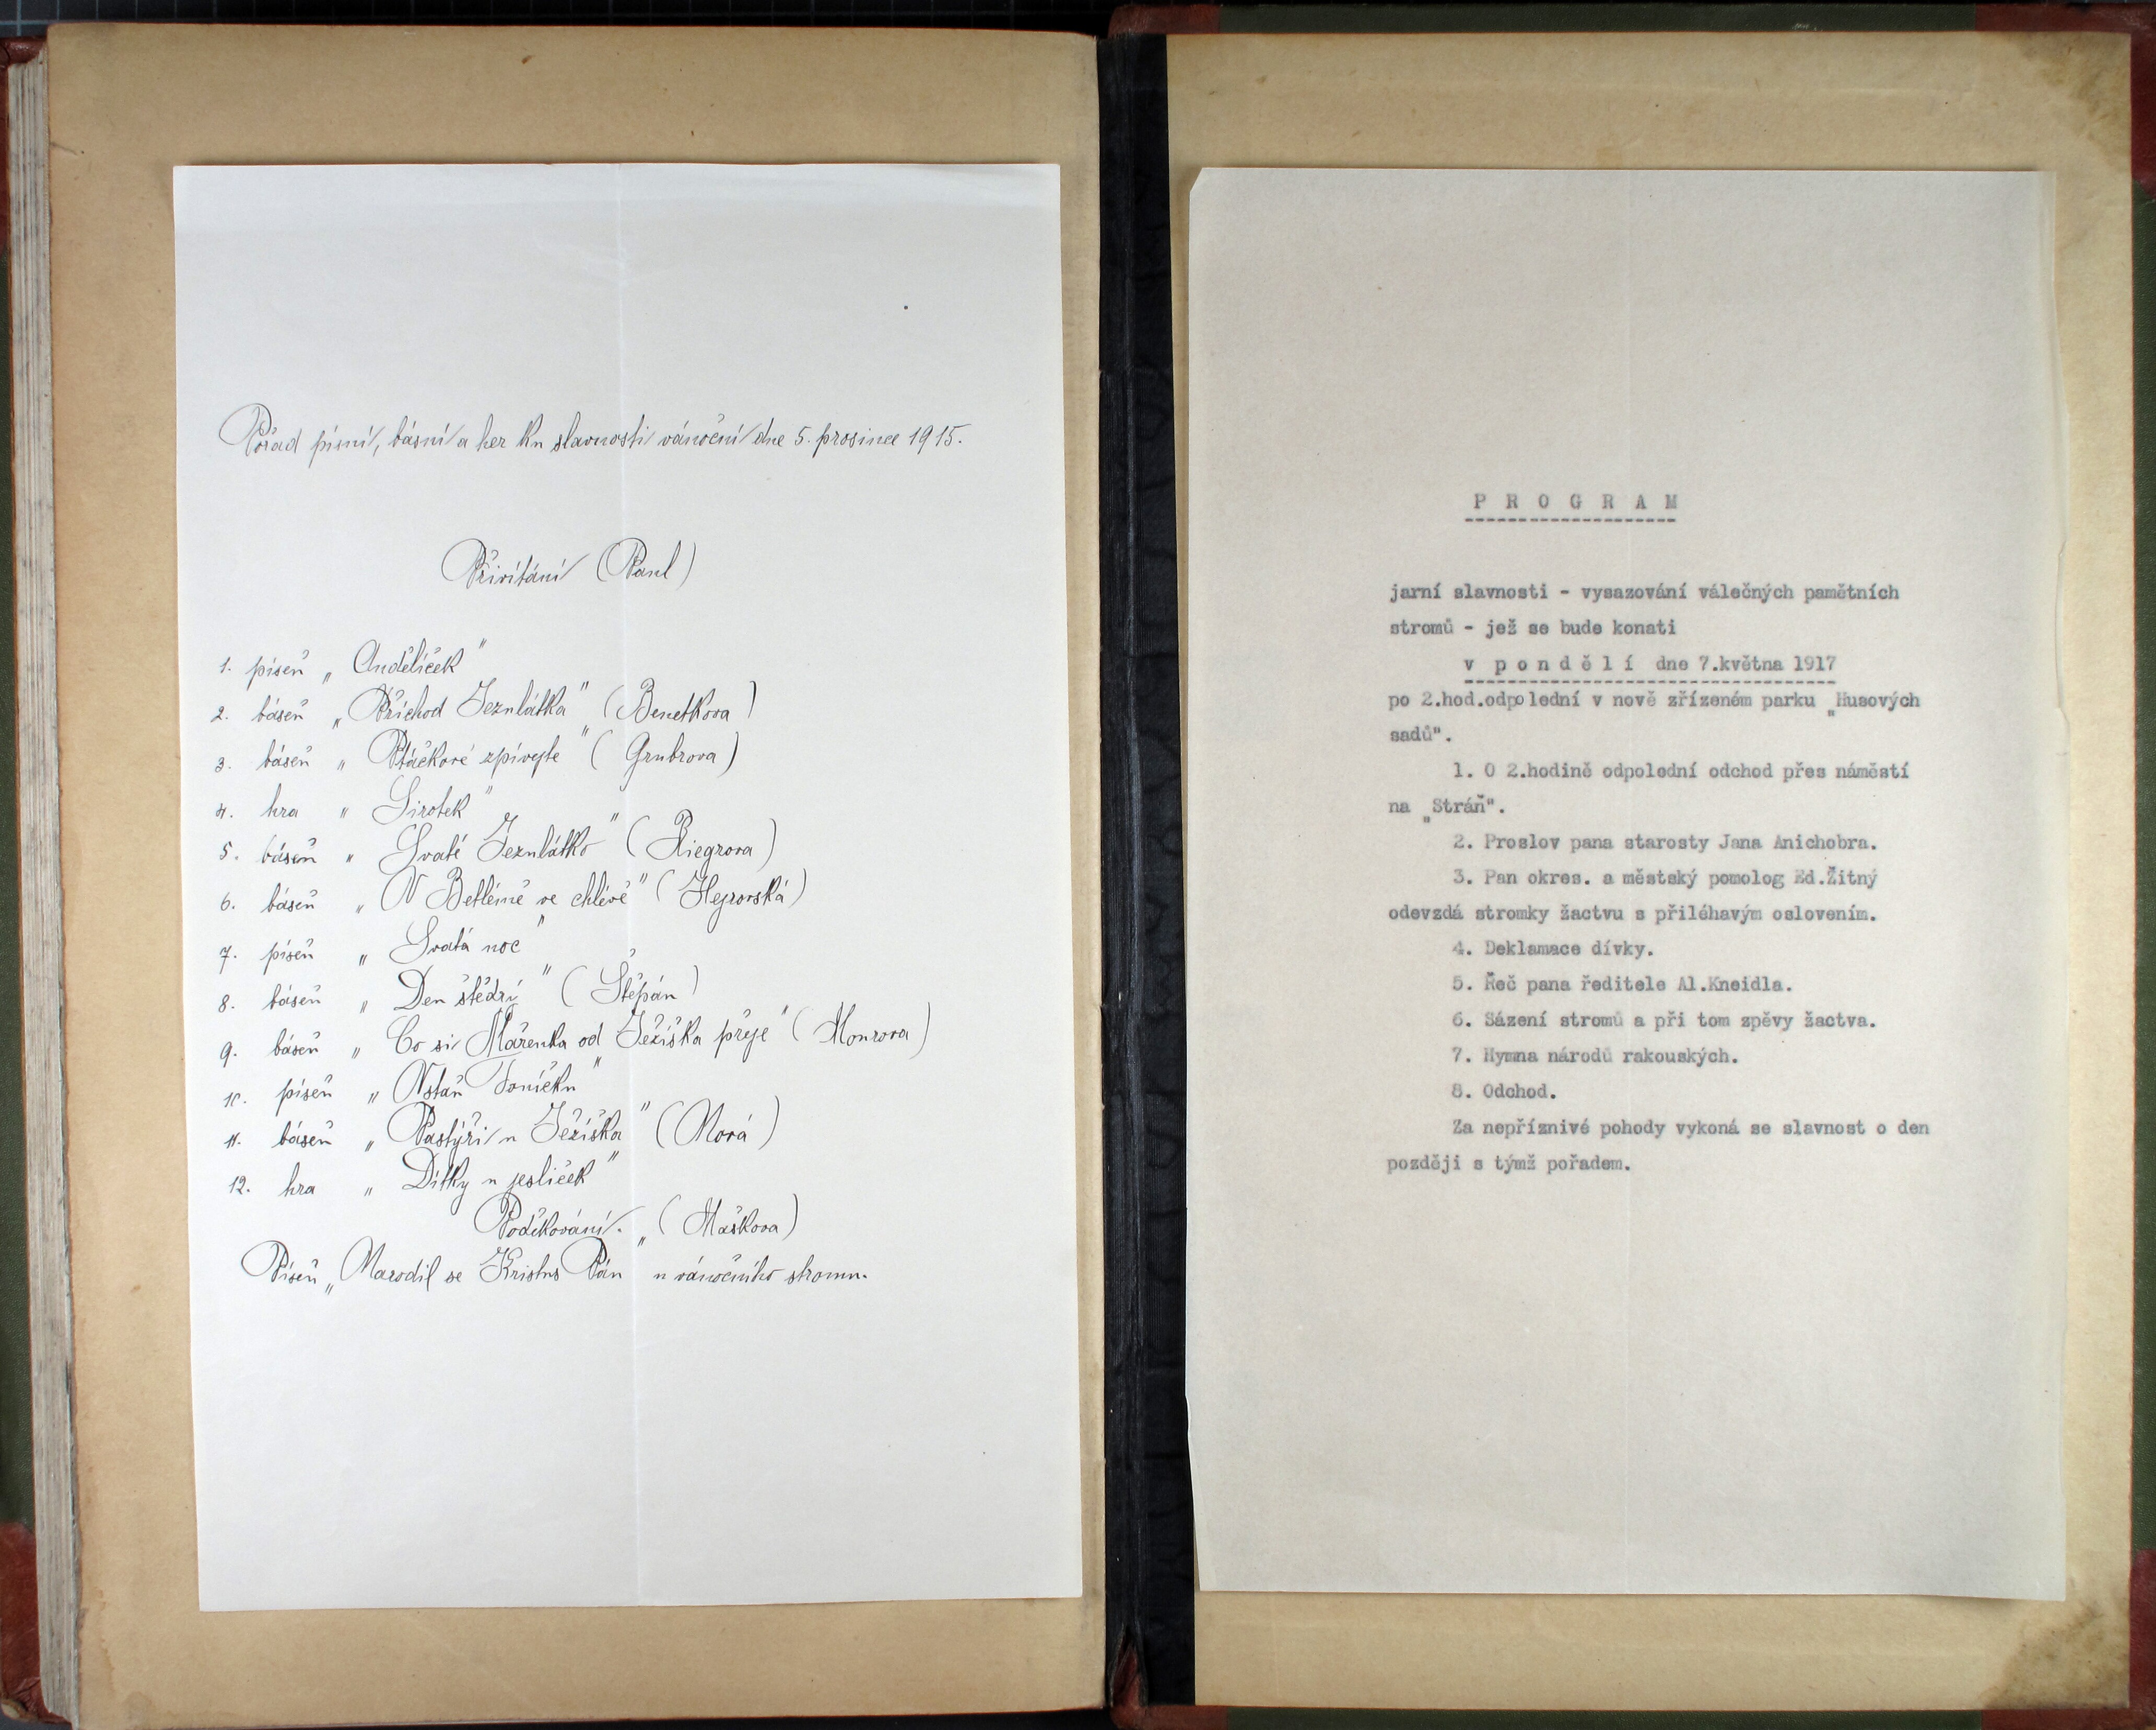 Pořad písní, básní a her ku slavnosti vánoční dne 5. prosince 1915.
Přivítání (Paul)
1. píseň „Andělíček"
2. báseň „Příchod Jezulátka" (Benetkova)
3. báseň „Ptáčkové zpívejte" (Grubrova)
4. hra „Sirotek"
5. báseň „Svaté Jezulátko" (Riegrova)
6. báseň „V Betlémě ve chlévě" (Hejrovská)
7. píseň „Svatá noc"
8. báseň „Den štědrý" (Štěpán)
9. báseň „Co si Mařenka od Ježíška přeje" (Mourova)
10. píseň „Vstaň Toníčku"
11. báseň „Pastýři u Ježíška" (Nová)
12. hra „Dítky u jesliček"
Poděkování. (Maškova)
Píseň „Narodil se Kristus Pán" u vánočního stromu.
PROGRAM
jarní slavnosti - vysazování válečných pamětních
stromů - jež se bude konati
v pondělí dne 7.května 1917
po 2.hod.odpolední v nově zřízeném parku „Husových
sadů".
1. O 2.hodině odpolední odchod přes náměstí
na „Stráň".
2. Proslov pana starosty Jana Anichobra.
3. Pan okres. a městský pomolog Ed.Žitný
odevzdá stromky žactvu s přiléhavým oslovením.
4. Deklamace dívky.
5. Řeč pana ředitele Al.Kneidla.
6. Sázení stromů a při tom zpěvy žactva.
7. Hymna národů rakouských.
8. Odchod.
Za nepříznivé pohody vykoná se slavnost o den
později s týmž pořadem.